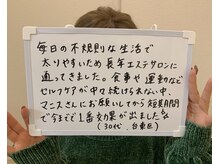 毎日の不規則な生活で
太りやすいため長年エステサロンに
通ってきました。食事や運動など
セルフケアが中々続けられない中、
マニスさんにお願いしてから短期間
で今までで1番効果が出ました
(30代 台東区)